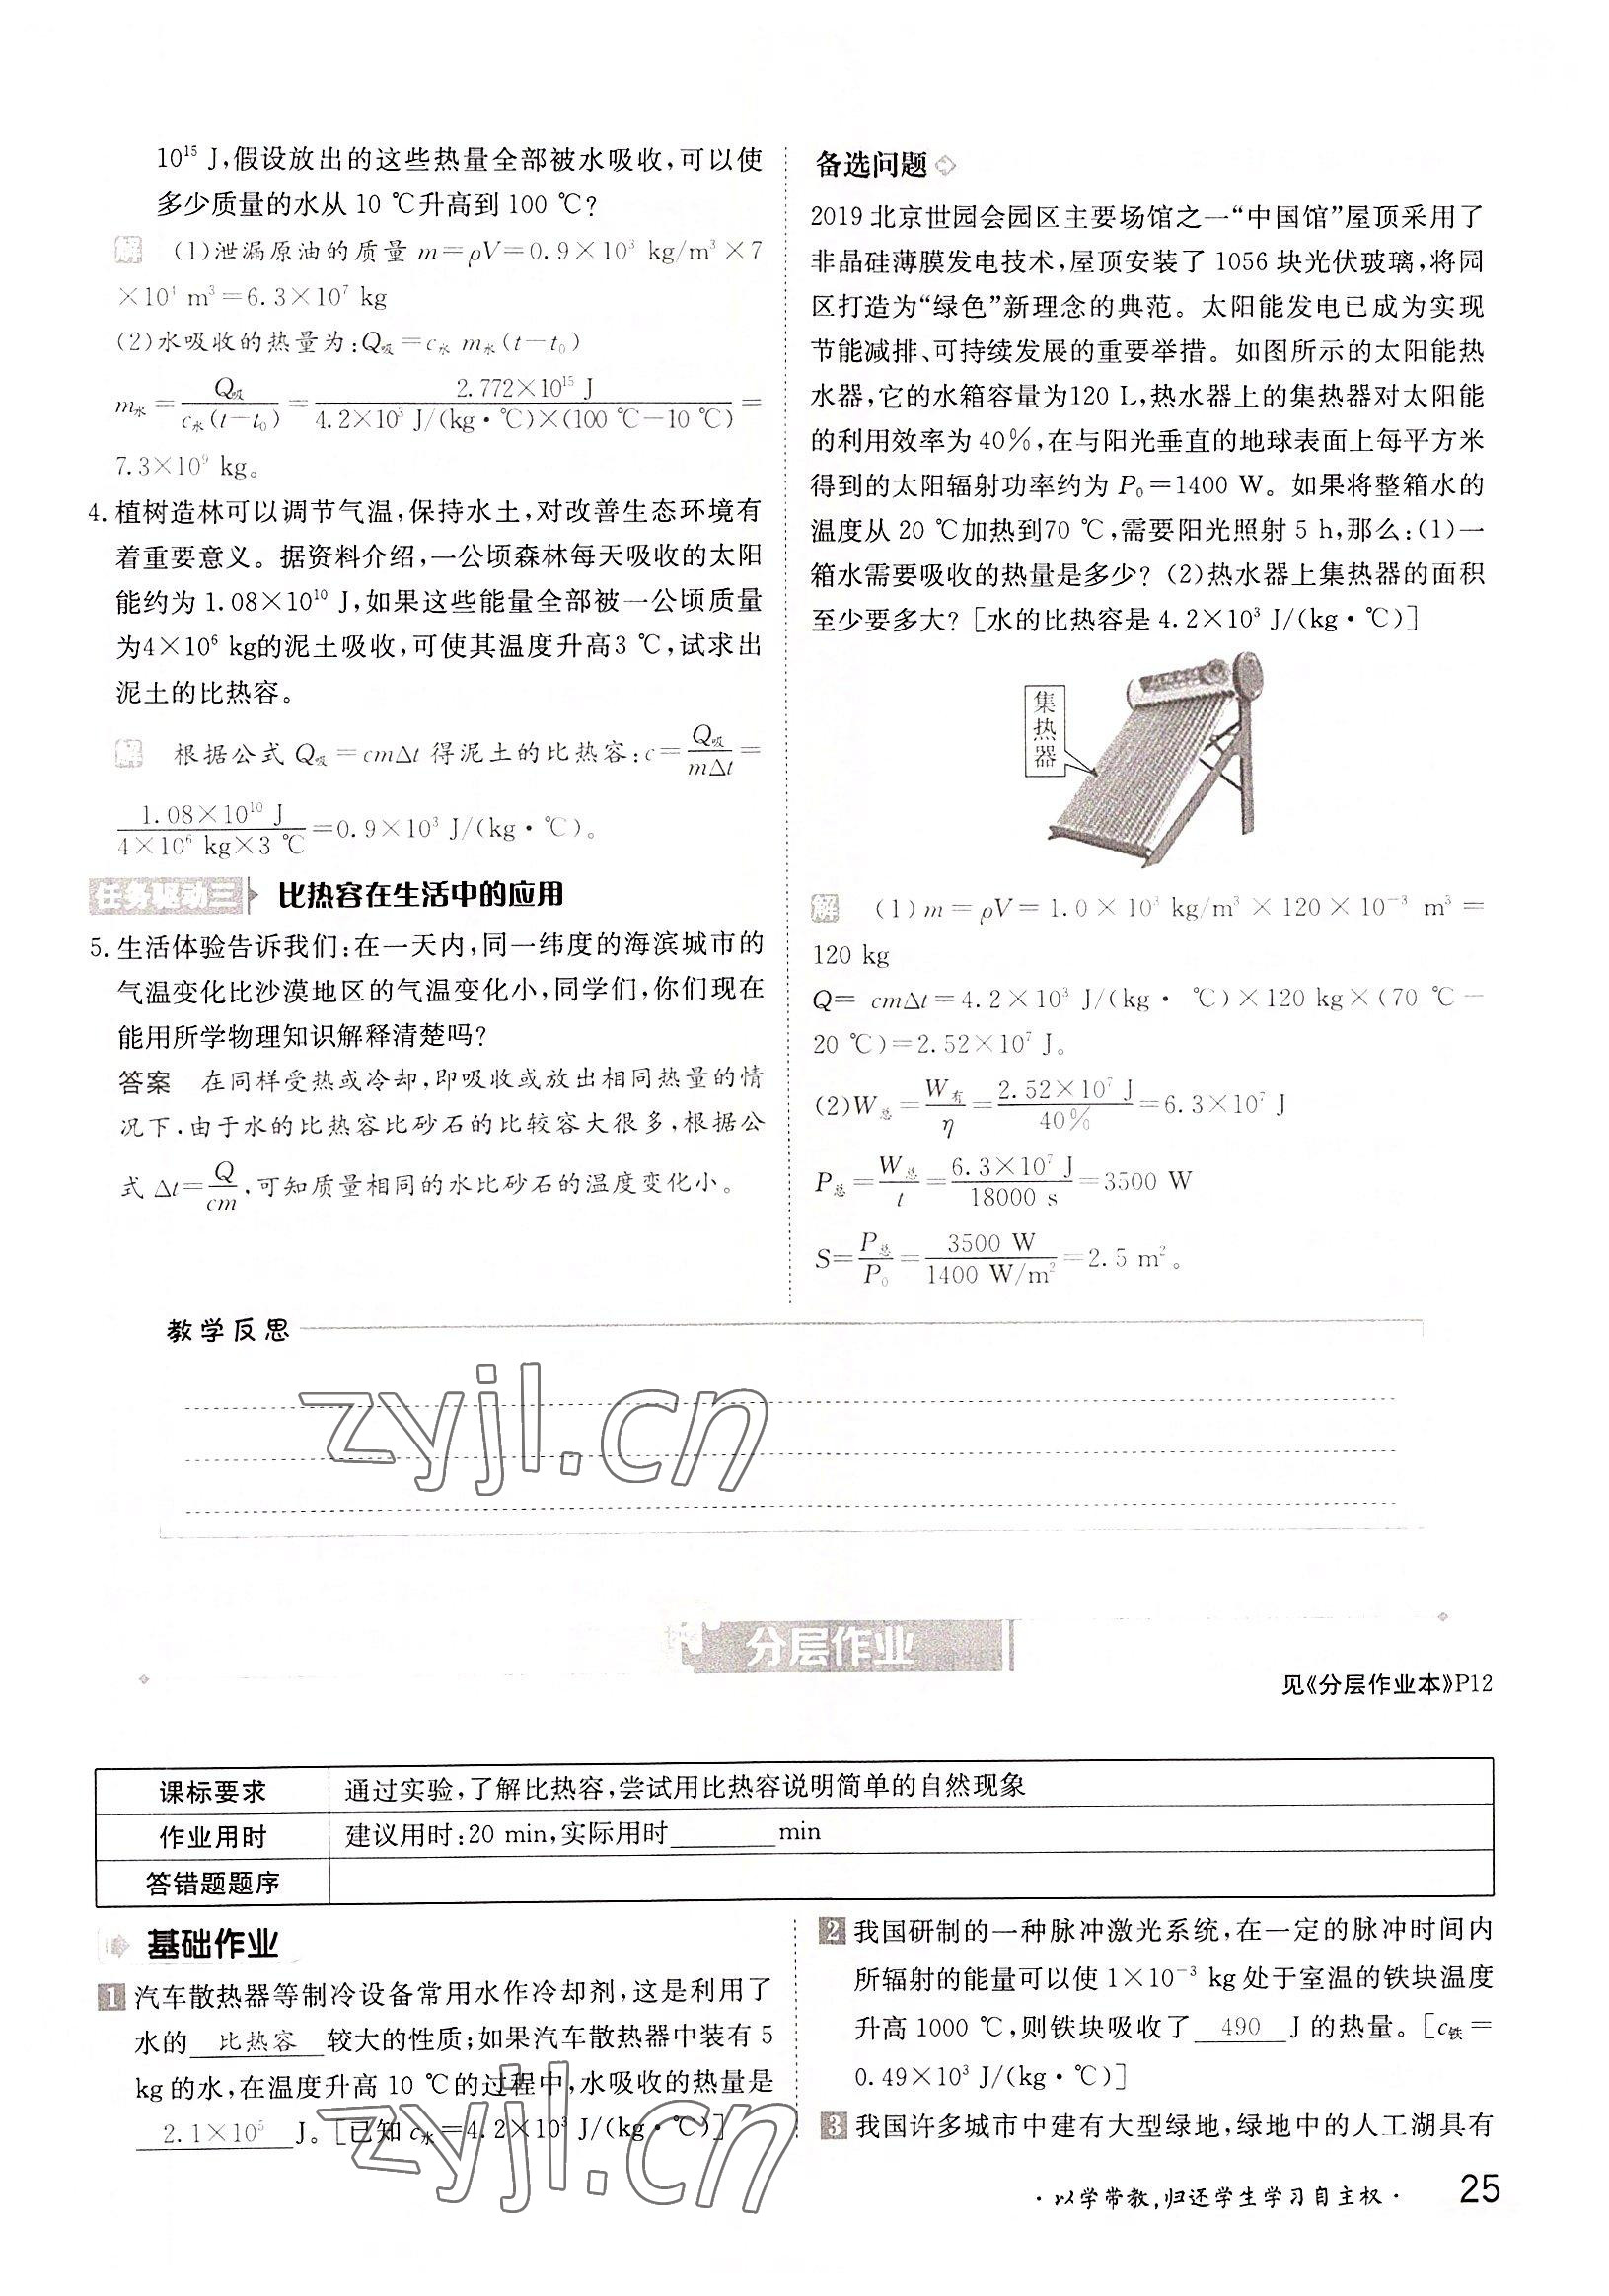 10¹⁵ J,假设放出的这些热量全部被水吸收,可以使
多少质量的水从 10 ℃升高到 100 ℃?
解 (1)泄漏原油的质量 m=ρV=0.9×10³ kg/m³×7
×10⁴ m³=6.3×10⁷ kg
(2)水吸收的热量为:Q吸=c水 m水(t-t₀)
m水=Q吸/c水(t-t₀)=2.772×10¹⁵ J/4.2×10³ J/(kg·℃)×(100 ℃-10 ℃)=
7.3×10⁹ kg。
4. 植树造林可以调节气温,保持水土,对改善生态环境有
着重要意义。据资料介绍,一公顷森林每天吸收的太阳
能约为 1.08×10¹⁰ J,如果这些能量全部被一公顷质量
为4×10⁶ kg的泥土吸收,可使其温度升高3 ℃,试求出
泥土的比热容。
解 根据公式 Q吸=cmΔt 得泥土的比热容:c=Q吸/mΔt=
1.08×10¹⁰ J/4×10⁶ kg×3 ℃=0.9×10³ J/(kg·℃)。
任务驱动三 比热容在生活中的应用
5. 生活体验告诉我们:在一天内,同一纬度的海滨城市的
气温变化比沙漠地区的气温变化小,同学们,你们现在
能用所学物理知识解释清楚吗?
答案 在同样受热或冷却,即吸收或放出相同热量的情
况下,由于水的比热容比砂石的比较容大很多,根据公
式 Δt=Q/cm,可知质量相同的水比砂石的温度变化小。
备选问题
2019 北京世园会园区主要场馆之一“中国馆”屋顶采用了
非晶硅薄膜发电技术,屋顶安装了 1056 块光伏玻璃,将园
区打造为“绿色”新理念的典范。太阳能发电已成为实现
节能减排、可持续发展的重要举措。如图所示的太阳能热
水器,它的水箱容量为120 L,热水器上的集热器对太阳能
的利用效率为 40%,在与阳光垂直的地球表面上每平方米
得到的太阳辐射功率约为 P₀=1400 W。如果将整箱水的
温度从 20 ℃加热到70 ℃,需要阳光照射 5 h,那么:(1)一
箱水需要吸收的热量是多少?(2)热水器上集热器的面积
至少要多大?[水的比热容是 4.2×10³ J/(kg·℃)]
集热器
解 (1)m=ρV=1.0×10³ kg/m³×120×10⁻³ m³=
120 kg
Q= cmΔt=4.2×10³ J/(kg· ℃)×120 kg×(70 ℃-
20 ℃)=2.52×10⁷ J。
(2)W总=W有/η=2.52×10⁷ J/40%=6.3×10⁷ J
P总=W总/t=6.3×10⁷ J/18000 s=3500 W
S=P总/P₀=3500 W/1400 W/m²=2.5 m²。
教学反思
zyjl.cn
分层作业
见《分层作业本》P12
课标要求 通过实验,了解比热容,尝试用比热容说明简单的自然现象
作业用时 建议用时:20 min,实际用时________min
答错题题序
基础作业
1 汽车散热器等制冷设备常用水作冷却剂,这是利用了
水的 比热容 较大的性质;如果汽车散热器中装有 5
kg 的水,在温度升高 10 ℃的过程中,水吸收的热量是
2.1×10⁵ J。[已知 c水=4.2×10³ J/(kg·℃)]
2 我国研制的一种脉冲激光系统,在一定的脉冲时间内
所辐射的能量可以使 1×10⁻³ kg 处于室温的铁块温度
升高 1000 ℃,则铁块吸收了 490 J 的热量。[c铁=
0.49×10³ J/(kg·℃)]
3 我国许多城市中建有大型绿地,绿地中的人工湖具有
zyjl.cn
·以学带教,归还学生学习自主权· 25